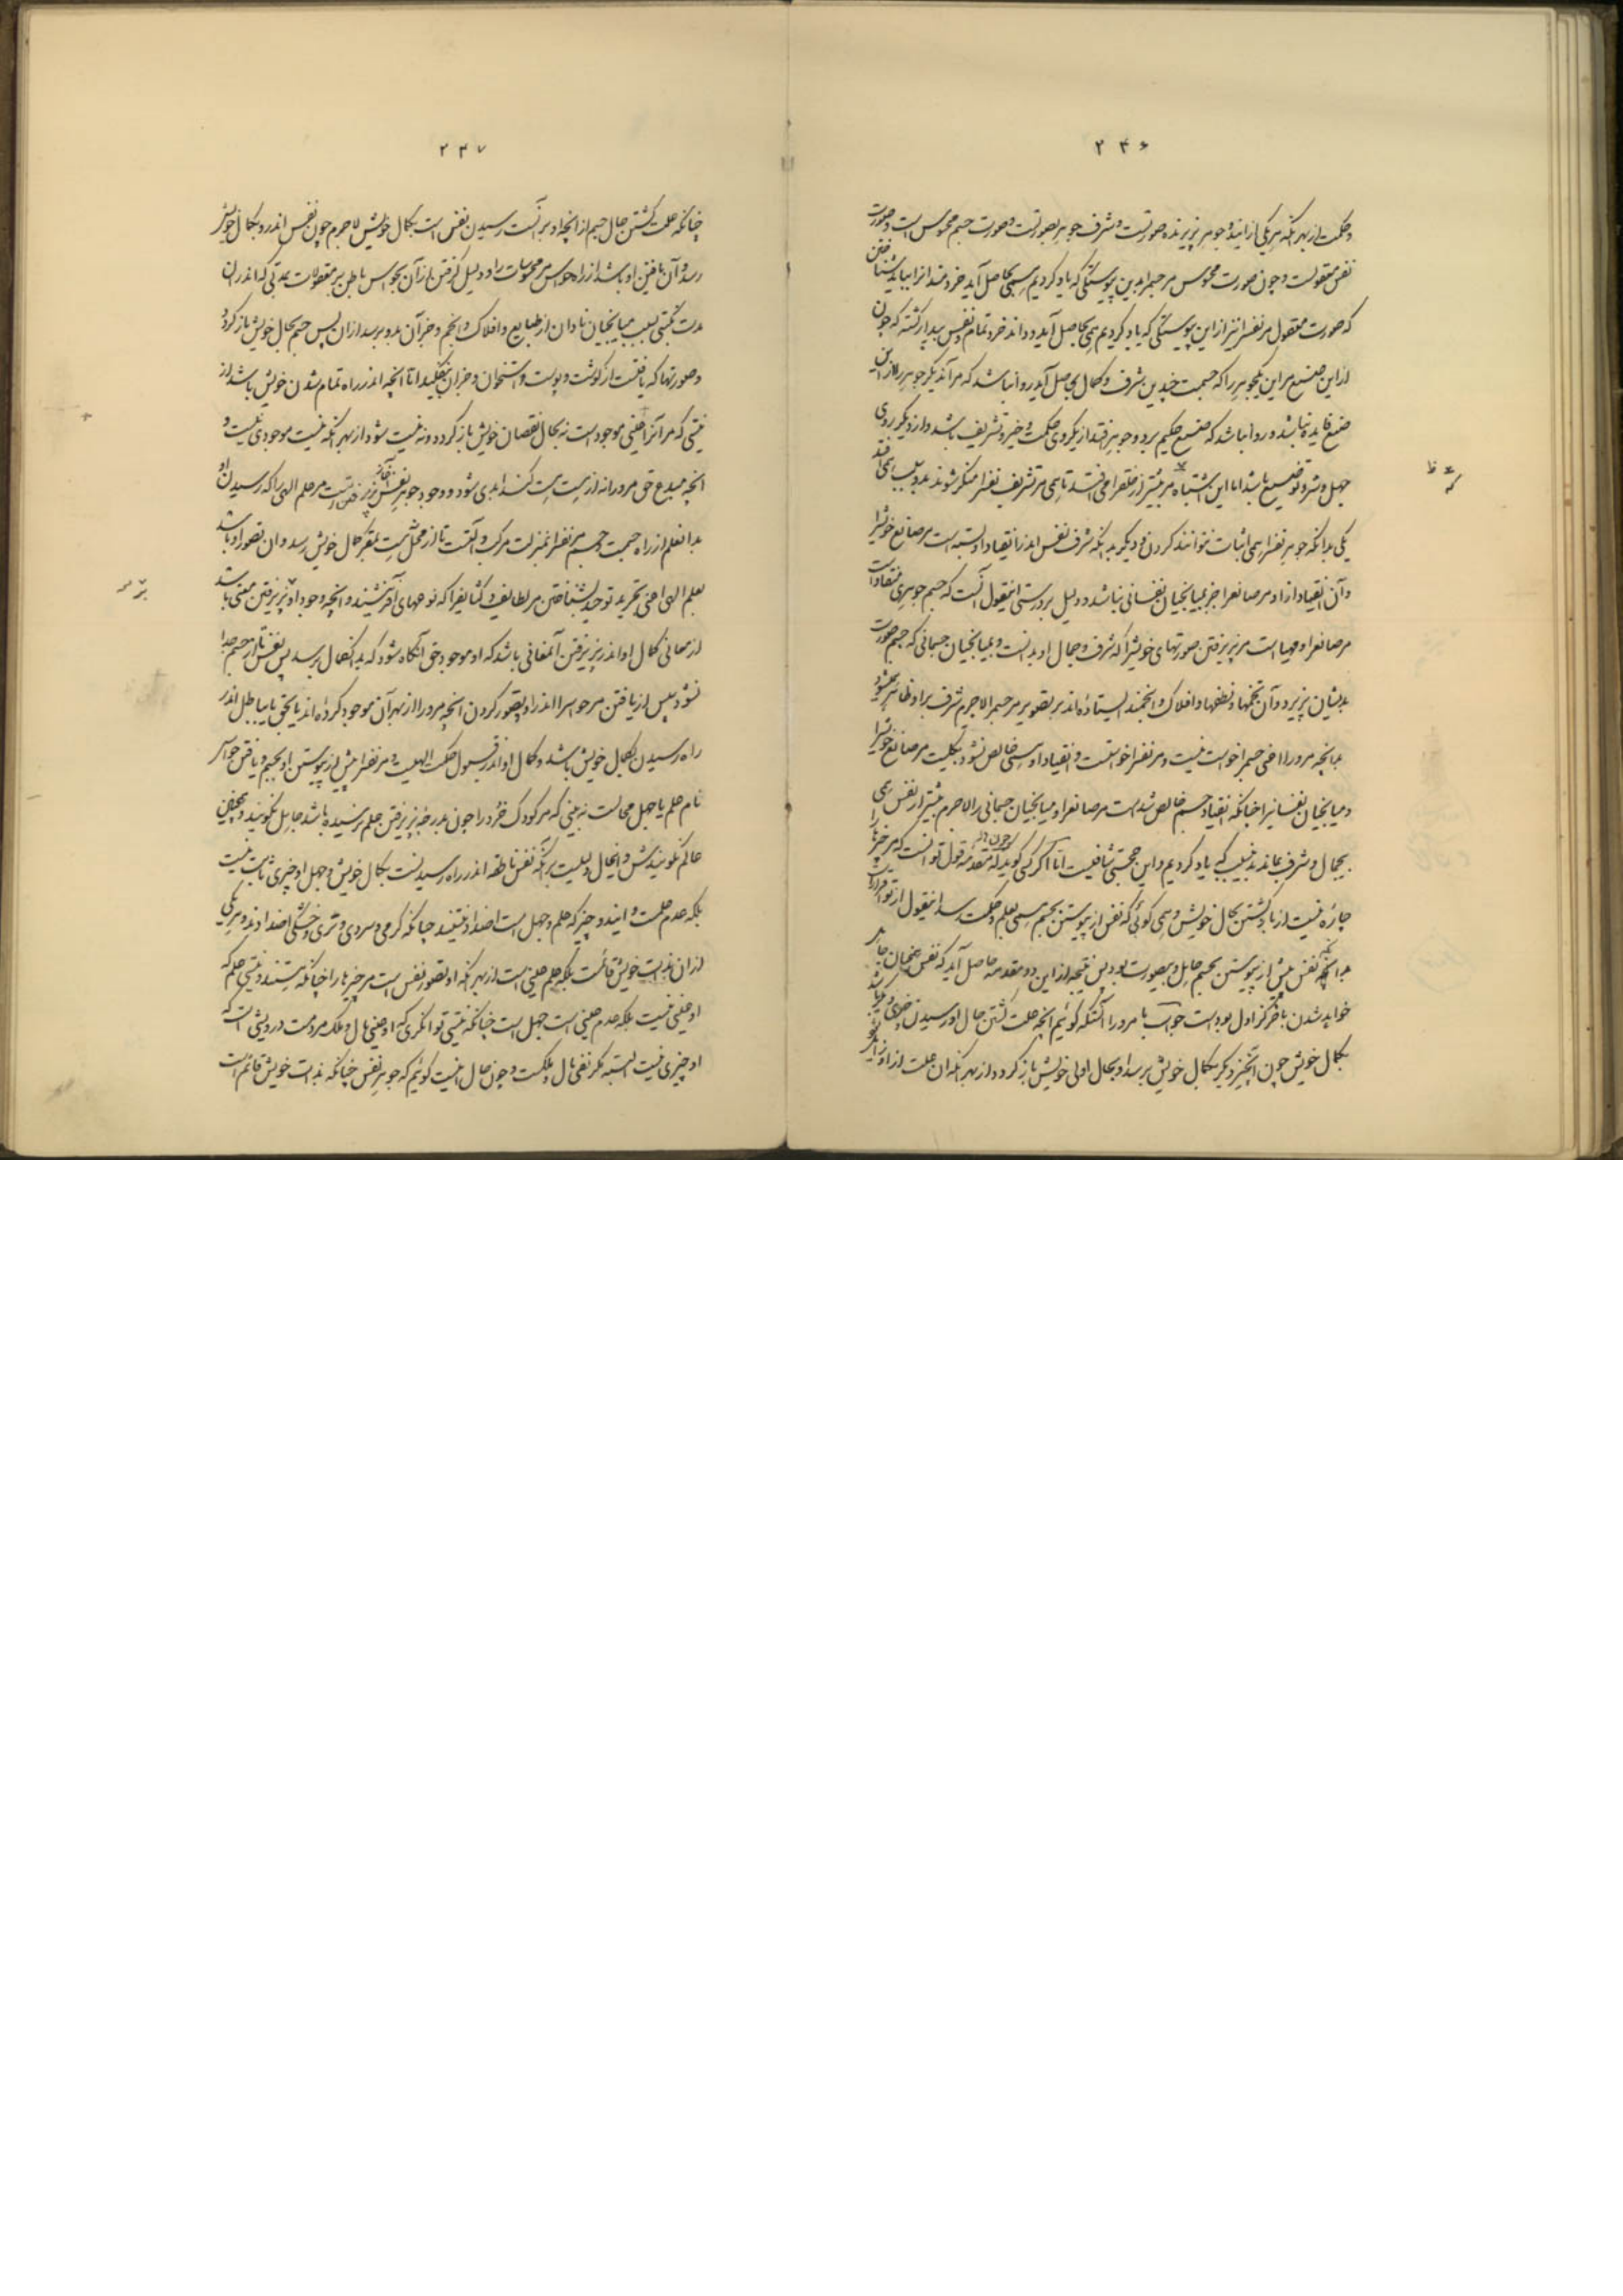 ۲۴۶
و حکمت از بهر آنکه هر یکی از این دو جوهر پذیرنده صورتست و شرف جوهر بصورتست و صورت جسم محسوس است و صورت
نفس معقولست و چون صورت محسوس مر جسم را بدین پیوستگی که یاد کردیم همی حاصل آید خردمند را بباید شناختن
که صورت معقول مر نفس را نیز از این پیوستگی که یاد کردیم همی حاصل آید و داند خرد تمام و نفس بیدار گشته که چون
از این صنع مر این یکجوهر را که جسمست چندین شرف و کمال همی حاصل آید روا نباشد که مر آن دیگر جوهر را از این
صنع فایده نباشد و روا نباشد که صنع حکیم بر دو جوهر فتد از یکروی حکمت و خیر و تشریف باشد و از دیگر روی
جهل و شر و توضیع باشد اما این اشتباه مر بیشتر از خلق را می افتد تا همی مر تشریف نفس را منکر شوند بدو سبب همی افتد
یکی بدانکه جوهر نفس را همی اثبات نتوانند کردن و دیگر بدانکه شرف نفس اندر انقیاد او بسته است مر صانع خویش را
و آن انقیاد از او مر صانع را جز بمیانجیان نفسانی نباشد و دلیل بر درستی این قول آنست که جسم جوهری منقاد است
مر صانع را و مهیا است مر پذیرفتن صورتهای خویش را که شرف و جمال او بدانست و بمیانجیان جسمانی که جسم صورت
بدیشان پذیرد و آن تخمها و نطفها و افلاک و انجمند ایستاده اند بر تصویر مر جسم را لاجرم شرف بر او ظاهر همیشود
بدانچه مر او را یعنی جسم را خواست نیست و مر نفس را خواستست و انقیاد او همی خالص نشود بکلیت مر صانع خویش را
و میانجیان نفسانی را چنانکه انقیاد جسم خالص شده است مر صانع را و میانجیان جسمانی را لاجرم بیشتر از نفس همی
بیجمال و شرف بماند بدین سبب که یاد کردیم و این حجتی شافیست اما اگر کسی گوید که چون در مقدمه قول تو آنست که مر چیزها را
چاره نیست از بازگشتن بحال خویش و همی گوئی که نفس از پیوستن بجسم همی بعلم و حکمت رسد این قول از تو اقرار است
بدانچه نفس پیش از پیوستن بجسم جاهل و بیصورت بود پس نتیجه از این دو مقدمه حاصل آید که نفس همچنان جاهل
خواهد شدن باخر کز اول بوده است جواب ما مر او را آنستکه گوئیم انچه علت گشتن حال او رسیدن چیزی دیگر باشد
بکمال خویش چون آنچیز دیگر بکمال خویش برسد او بحال اولی خویش باز گردد از بهر آنکه آن علت از او زایل شود
۲۴۷
چنانکه علت گشتن حال جسم از انچه او بر آنست رسیدن نفس است بکمال خویش لاجرم چون نفس اندر او بکمال خویش
رسد و آن یافتن او باشد از راه حواس مر محسوسات را و دلیل گرفتن از آن بحواس باطن بر معقولات بمدتی که اندر آن
مدت گیتی بسبب میانجیان نادان از طبایع و افلاک و انجم و جز آن بدو برسد از آن پس جسم بحال خویش باز گردد
و صورتها که یافتست از گوشت و پوست و استخوان و جز آن بیفکند اما انچه اندر راه تمام شدن خویش باشد از
نیستی که مر آنرا عینی موجود است نه بحال نقصان خویش باز گردد و نه نیست شود از بهر آنکه نیست موجودی نیست و
انچه مبدع حق مر او را نه از چیست هست کند ابدی شود و وجود جوهر نفس پذیرفتنست مر علم الهی را که رسیدن او
بدان علم از راه جسمست و جسم مر نفس را بمنزلت مرکب و آلتست تا از محل هست بمقر کمال خویش رسد و آن تصور او باشد
بعلم الهی اعنی تجرید توحید و شناختن مر لطایف و کثایف را که نوعهای آفرینشند و انچه وجود او پذیرفتن معنی باشد
از معانی کمال او اندر پذیرفتن آنمعانی باشد که او موجود حق آنگاه شود که بدان کمال برسد پس نفس تا از جسم جدا
نشود پس از یافتن مر حواس را اندر او بتصور کردن انچه مر او را از بهر آن موجود کرده اند یا بحق یا بباطل اندر
راه رسیدن بکمال خویش باشد و کمال او اندر قبول حکمت الهیست و مر نفس را پیش از پیوستن او بجسم و یافتن حواس
نام علم یا جهل محالست نه بینی که مر کودک خرد را چون بدرجه پذیرفتن علم نرسیده باشد جاهل نگویند و همچنین
عالم نگویندش و اینحال دلیلست بر آنکه نفس ناطقه اندر راه رسیدنست بکمال خویش و جهل او چیزی ثابت نیست
بلکه عدم علمست و این دو چیز که علم و جهل است اضداد نیستند چنانکه گرمی و سردی و تری و خشکی اضدادند و هر یکی
از آن بذات خویش قائمست بلکه علم عینی است از بهر آنکه او تصور نفس است مر چیزها را چنانکه هستند و نیستی علم که
او عینی نیست بلکه عدم عینی است جهل است چنانکه نیستی توانگری که او عینی مال و ملک مردمست درویشی است که
او چیزی نیست البته مگر نفی مال و ملکست و چون حال اینست گوئیم که جوهر نفس چنانکه بذات خویش قائم است